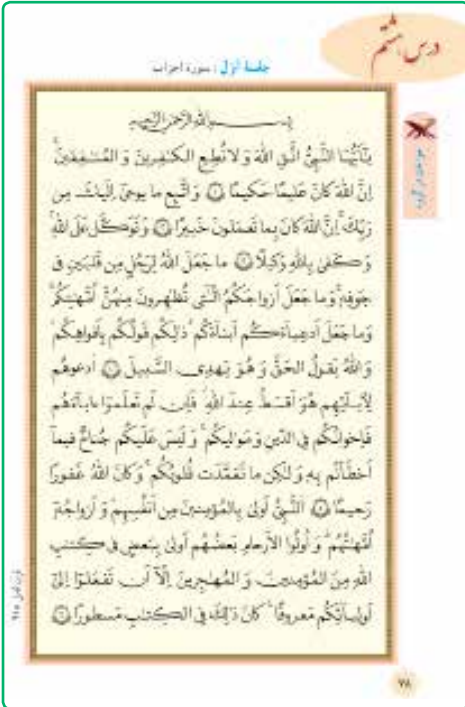 درس هشتم
جلسهٔ اوّل : سورهٔ احزاب
بِسمِ اللّٰهِ الرَّحمٰنِ الرَّحیمِ
یٰٓاَیُّهَا النَّبِیُّ اتَّقِ اللّٰهَ وَ لا تُطِعِ الکٰفِرینَ وَ المُنٰفِقینَ
اِنَّ اللّٰهَ کانَ عَلیمًا حَکیمًا ۱ وَ اتَّبِع ما یوحیٰٓ اِلَیکَ مِن
رَبِّکَ اِنَّ اللّٰهَ کانَ بِما تَعمَلونَ خَبیرًا ۲ وَ تَوَکَّل عَلَی اللّٰهِ
وَ کَفیٰ بِاللّٰهِ وَکیلًا ۳ ما جَعَلَ اللّٰهُ لِرَجُلٍ مِن قَلبَینِ فی
جَوفِهٖ وَ ما جَعَلَ اَزواجَکُمُ الّٰٓئی تُظٰهِرونَ مِنهُنَّ اُمَّهٰتِکُم
وَ ما جَعَلَ اَدعِیآءَکُم اَبنآءَکُم ذٰلِکُم قَولُکُم بِاَفواهِکُم
وَ اللّٰهُ یَقولُ الحَقَّ وَ هُوَ یَهدِی السَّبیلَ ۴ اُدعوهُم
لِأٰبآئِهِم هُوَ اَقسَطُ عِندَ اللّٰهِ فَاِن لَم تَعلَموٓا ءابآءَهُم
فَاِخوانُکُم فِی الدّینِ وَ مَوالیکُم وَ لَیسَ عَلَیکُم جُناحٌ فیمآ
اَخطَأتُم بِهٖ وَ لٰکِن ما تَعَمَّدَت قُلوبُکُم وَ کانَ اللّٰهُ غَفورًا
رَحیمًا ۵ اَلنَّبِیُّ اَولیٰ بِالمُؤمِنینَ مِن اَنفُسِهِم وَ اَزواجُهٗٓ
اُمَّهٰتُهُم وَ اُولُوا الاَرحامِ بَعضُهُم اَولیٰ بِبَعضٍ فی کِتٰبِ
اللّٰهِ مِنَ المُؤمِنینَ وَ المُهٰجِرینَ اِلّآ اَن تَفعَلوٓا اِلیٰٓ
اَولِیآئِکُم مَعروفًا کانَ ذٰلِکَ فِی الکِتٰبِ مَسطورًا ۶
۷۸